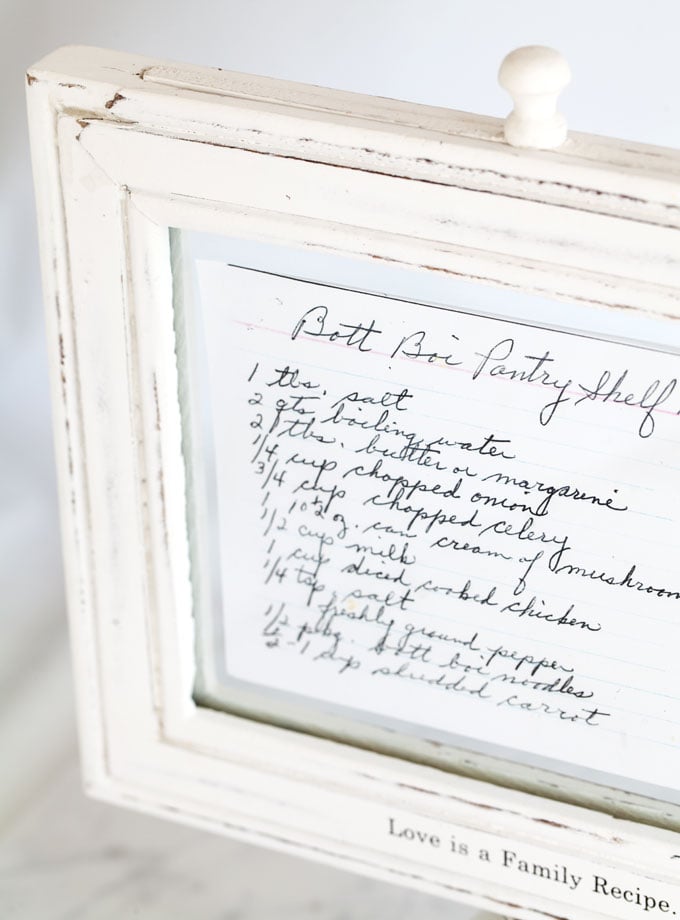 Bott Boi Pantry Shelf
1 tbs. salt
2 qts boiling water
2 tbs. butter or margarine
1/4 cup chopped onion
3/4 cup chopped celery
1 10½ oz. can cream of mushroom
1/2 cup milk
1 cup diced cooked chicken
1/4 tsp. salt
freshly ground pepper
1/2 pkg. bott boi noodles
1 cup shredded carrot
Love is a Family Recipe.